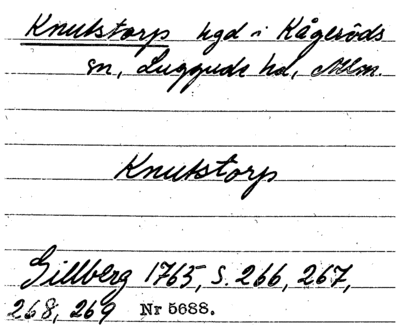 Knutstorp hgd i Kågeröds
sn, Luggude hd, Mlm.
Knutstorp
Gillberg 1765, s. 266, 267,
268, 269 Nr 5688.